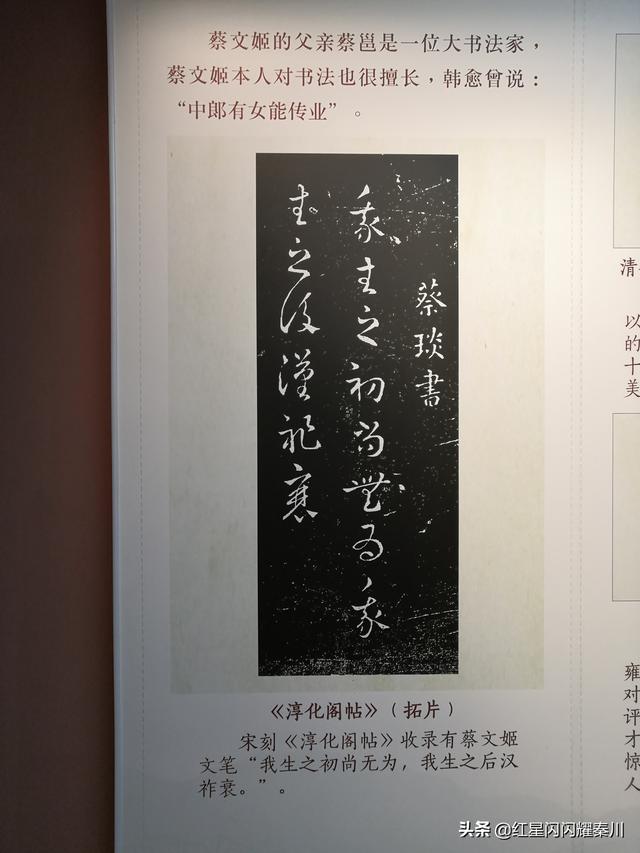 蔡文姬的父亲蔡邕是一位大书法家，
蔡文姬本人对书法也很擅长，韩愈曾说：
“中郎有女能传业”。
蔡琰書
我生之初尚無為我
生之後漢祚衰
《淳化阁帖》（拓片）
宋刻《淳化阁帖》收录有蔡文姬
文笔“我生之初尚无为，我生之后汉
祚衰。”。
清
以
的
十
美
雍
对
评
才
惊
人
头条 @红星闪闪耀秦川